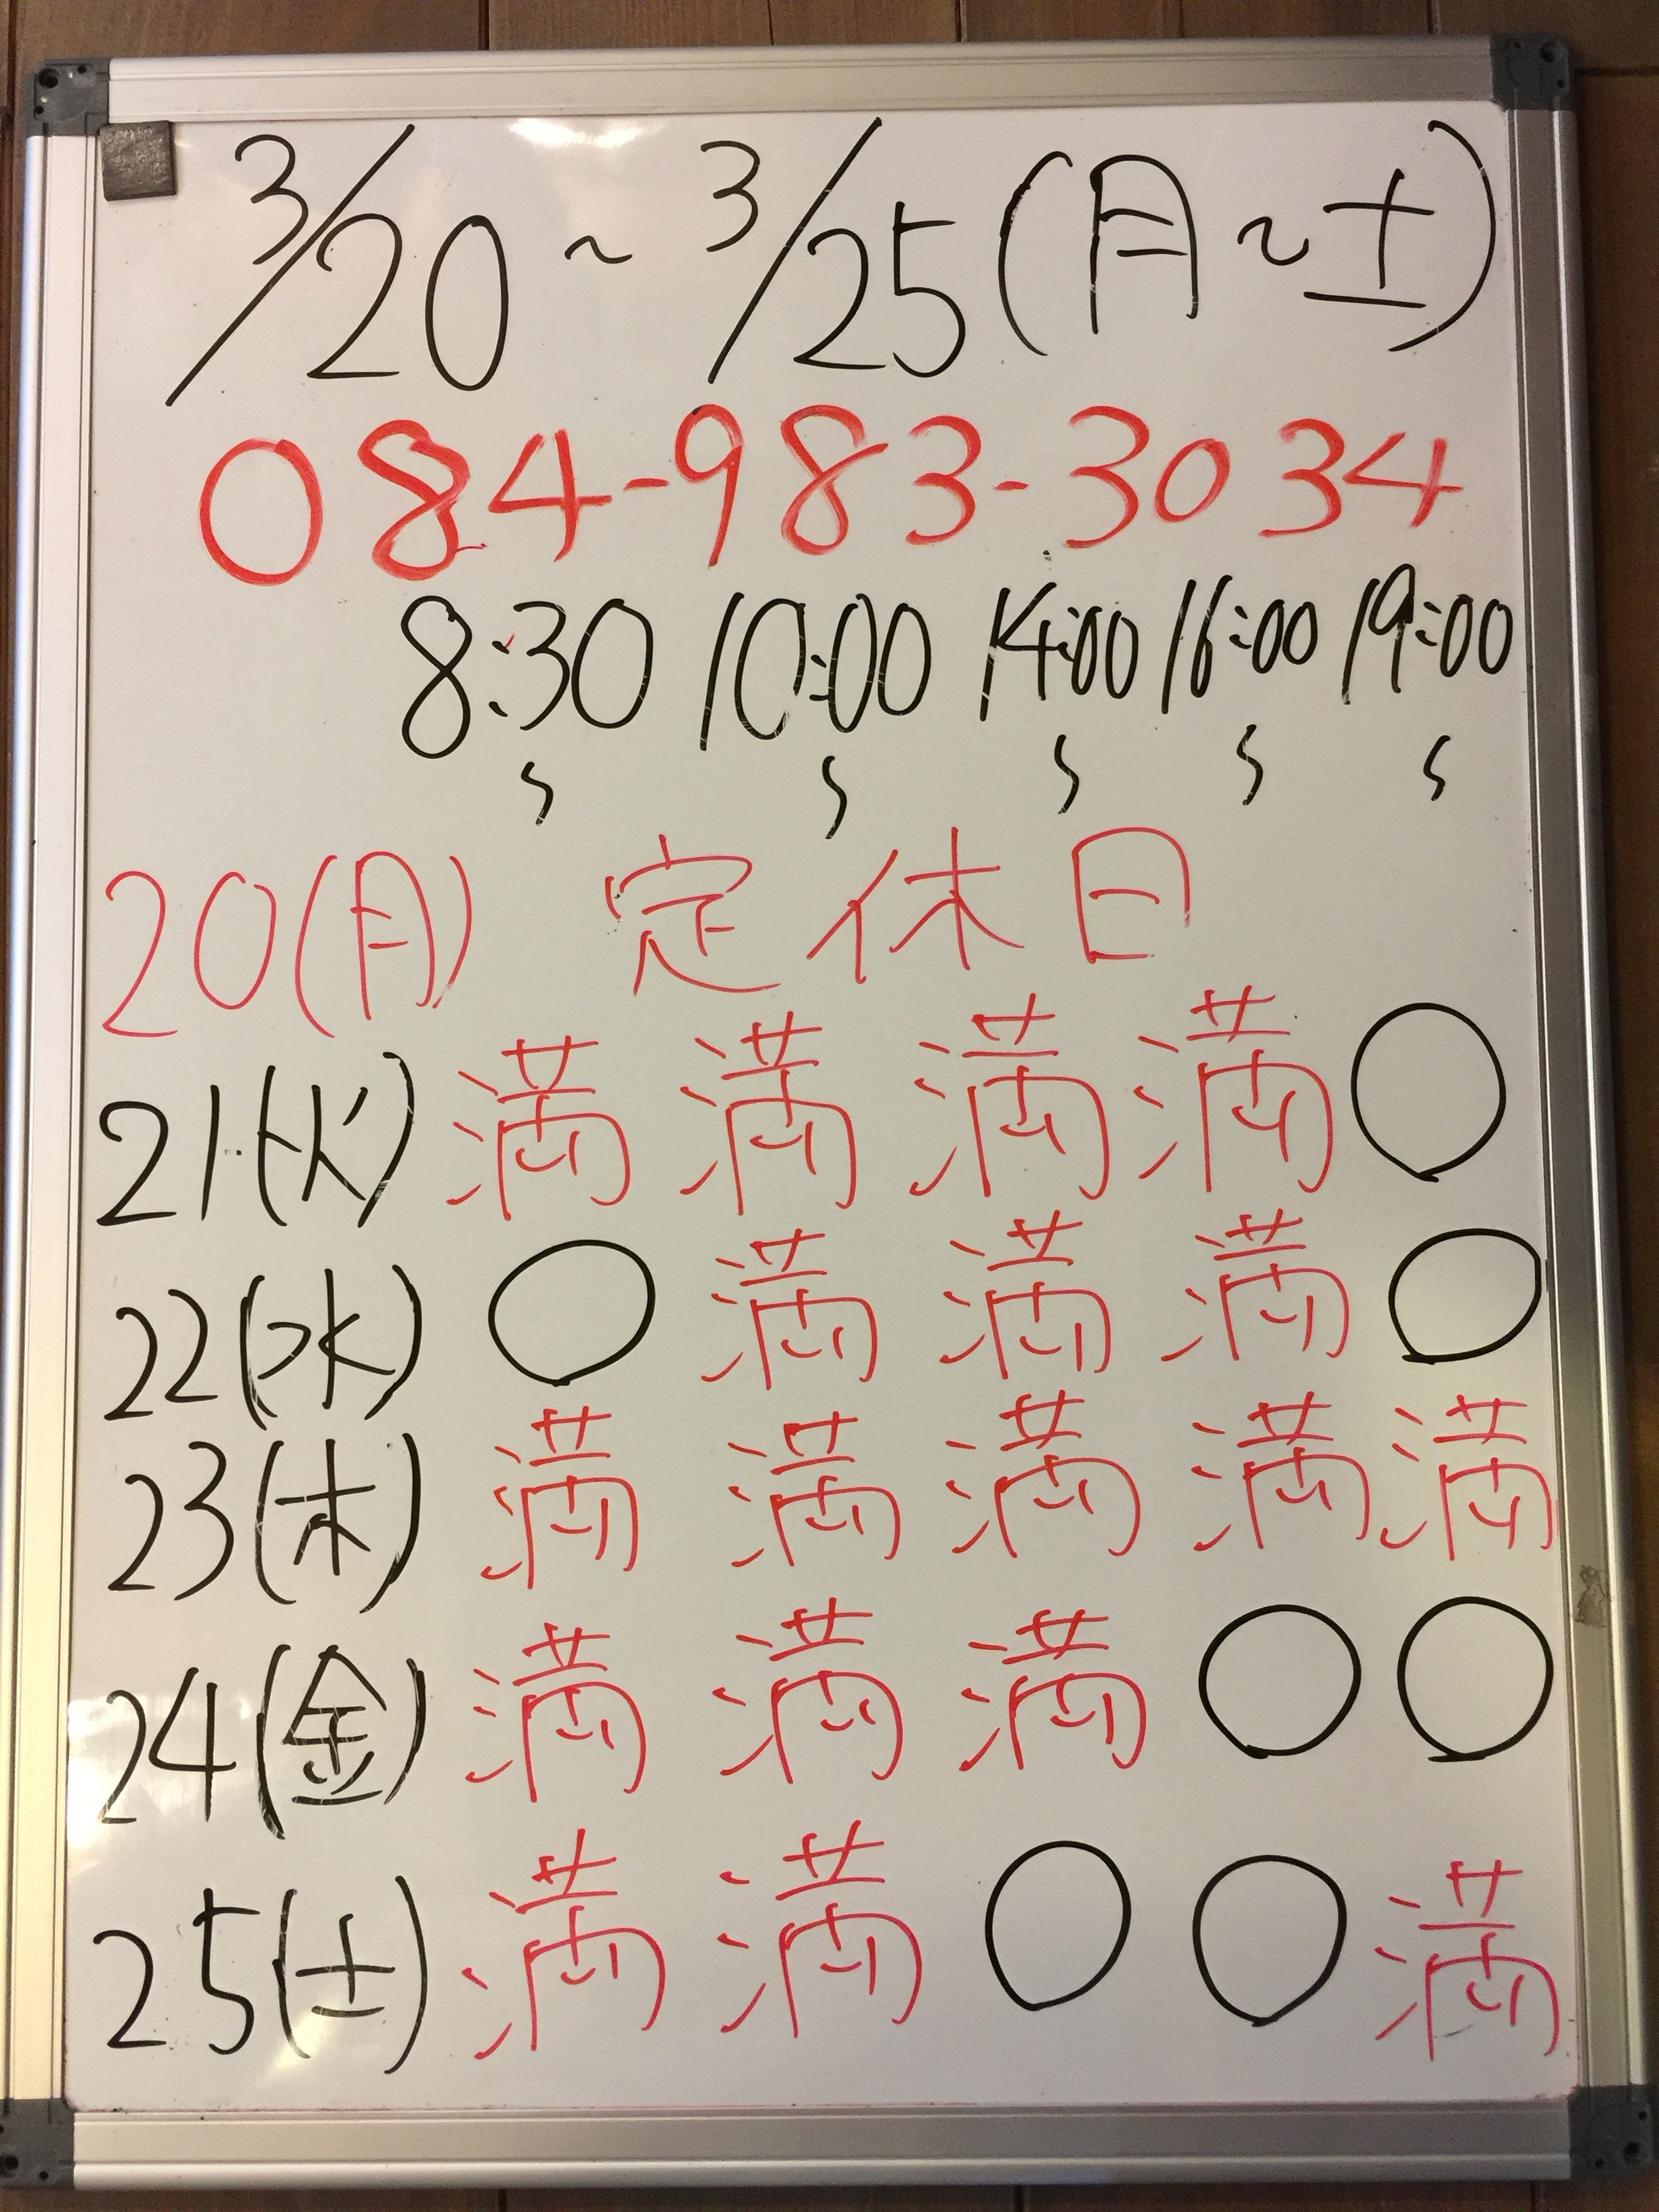 3/20~3/25(月~土)
084-983-3034
8:30 10:00 14:00 16:00 19:00
~ ~ ~ ~ ~
20(月) 定休日
21(火) 満 満 満 満 ○
22(水) ○ 満 満 満 ○
23(木) 満 満 満 満 満
24(金) 満 満 満 ○ ○
25(土) 満 満 ○ ○ 満